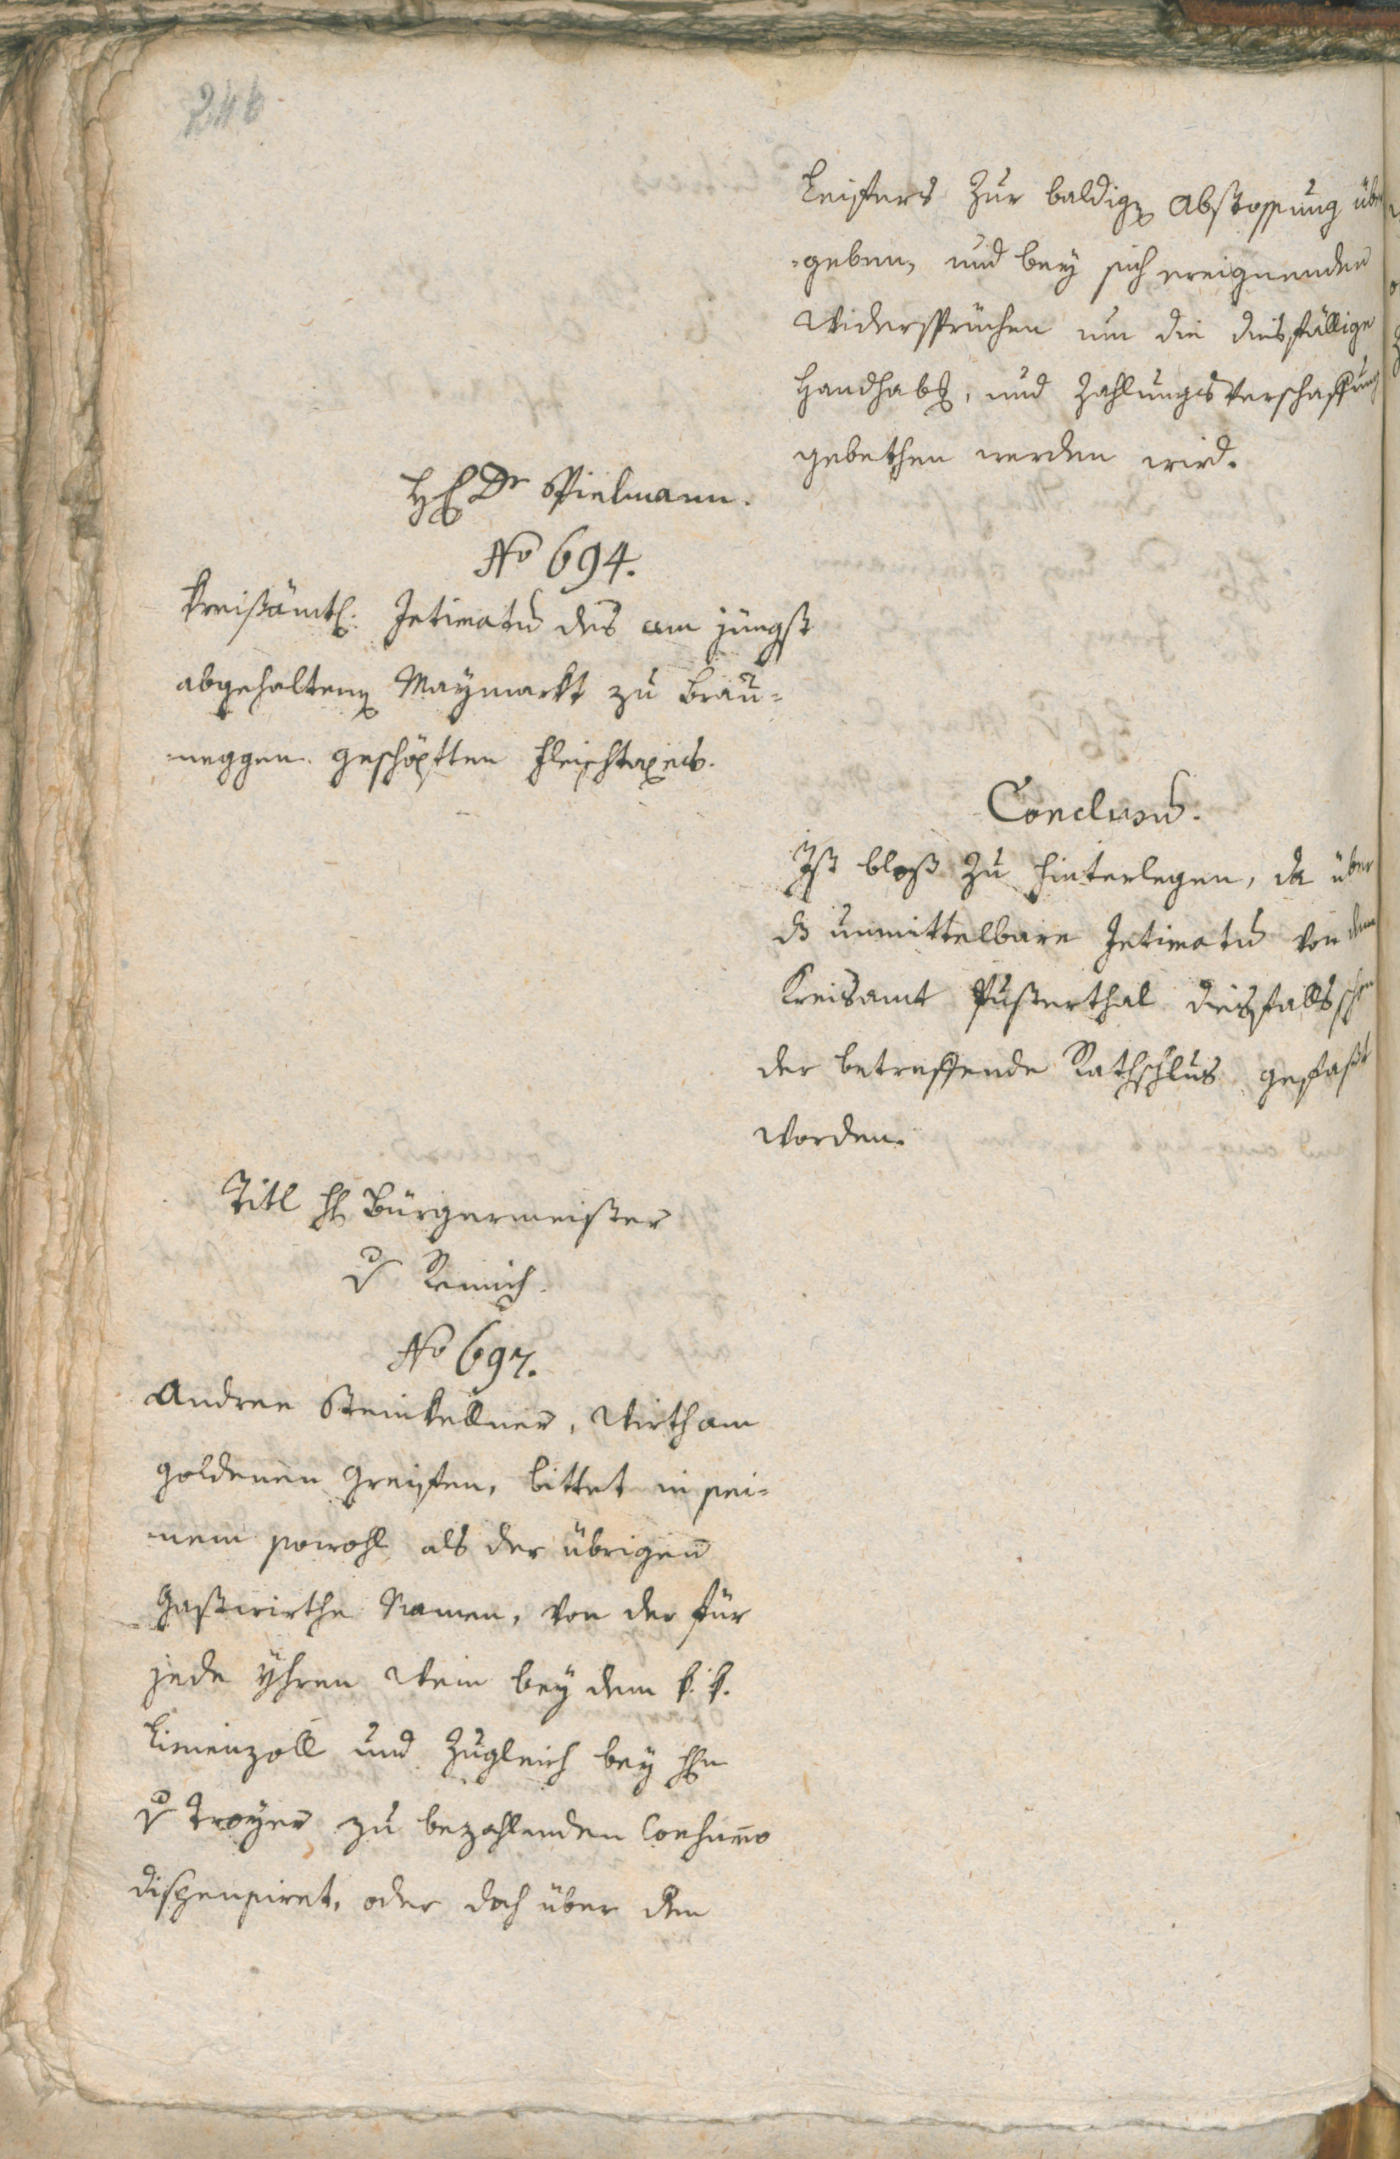 246
Leisters Zur baldig[en] Abstossung über
=geben, und bey sich ereignenden
Widersprüchen um die diesfällige
Handhab[ung], und Zahlungs Verschaffung
gebethen werden wird.
H[err] Dr Spielmann.
No 694.
Kreisämtl: Intimatum des am jüngst
abgehaltenen Maymarkt zu Brau=
neggen geschöpften Fleischtaxes.
Conclusum.
Ist bloß Zu hinterlegen, da über
das unmittelbare Intimatum von dem
Kreisamt Pusterthal diesfalls schon
der betreffende Rathschlus gefaßt
worden.
Titl H Bürgermeister
v Remich.
No 697.
Andree Steinkellner, Wirth am
goldenen Greifen, bittet in sei=
nem sowohl als der übrigen
Gastwirthe Namen, von der für
jede Yhren Wein bey dem k. k.
Linienzoll und Zugleich bey H
v Troyer zu bezahlenden Consumo
dispensiret, oder doch über den